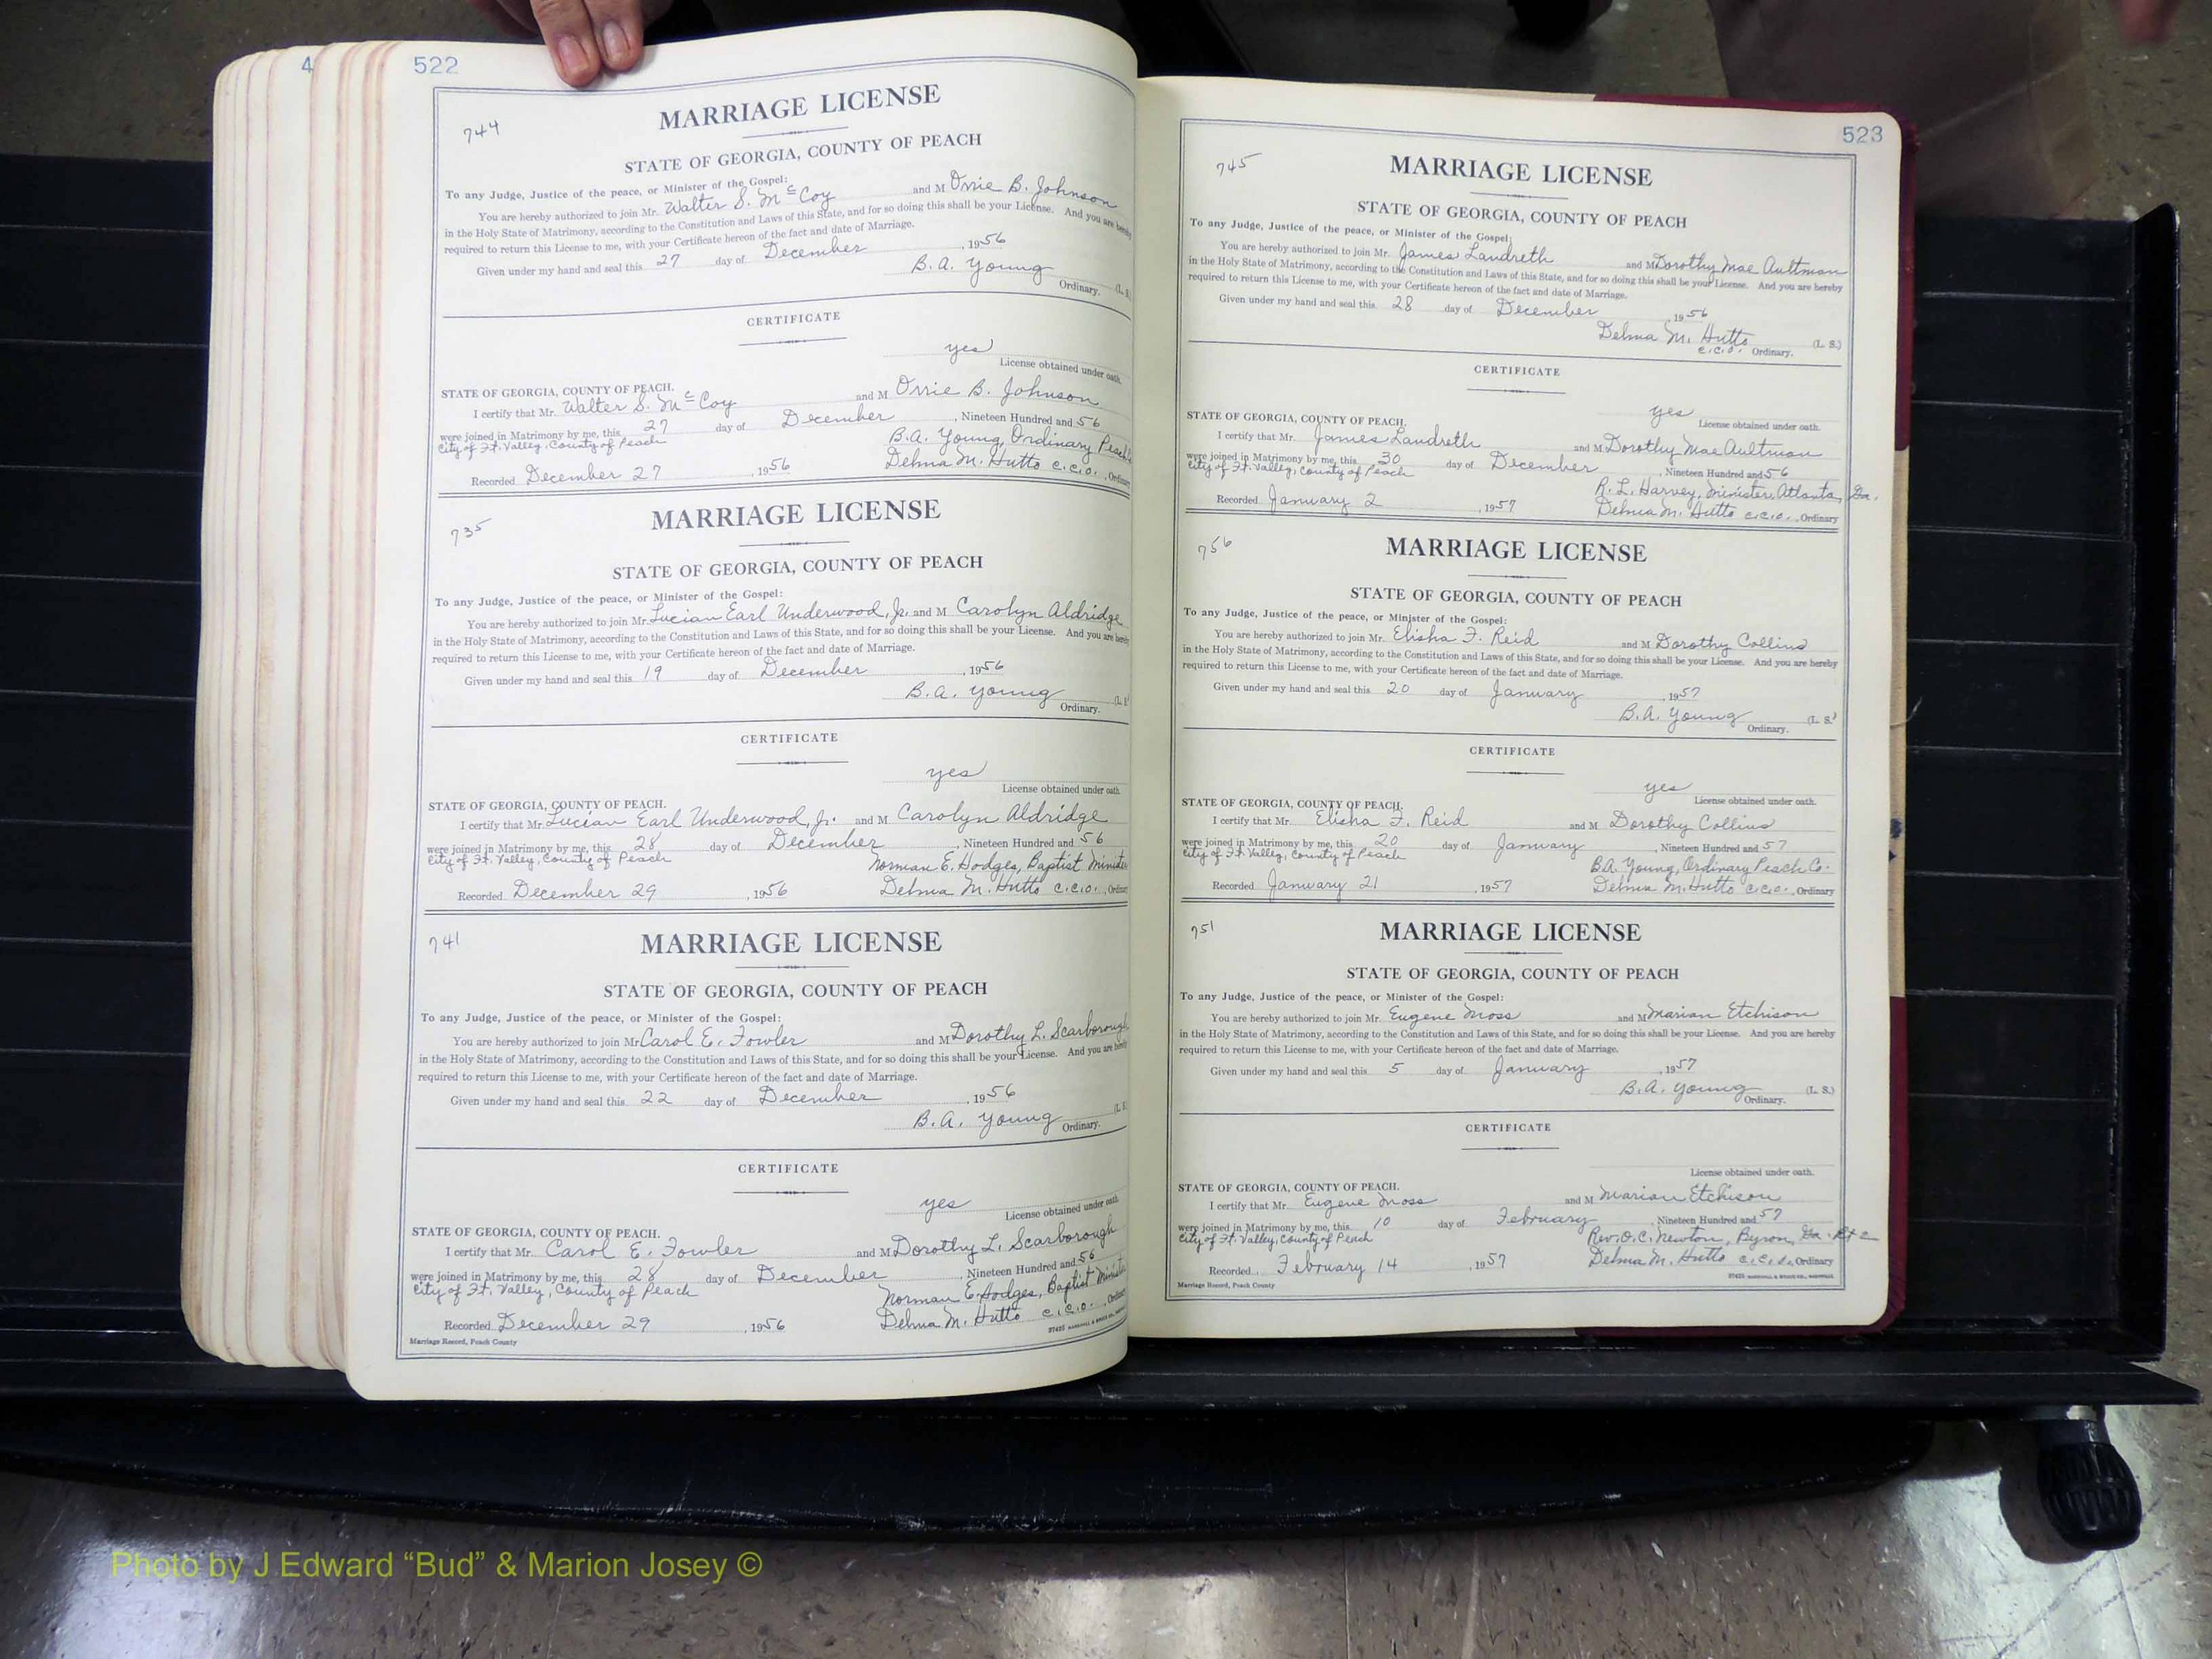 4
522
744
MARRIAGE LICENSE
STATE OF GEORGIA, COUNTY OF PEACH
To any Judge, Justice of the peace, or Minister of the Gospel:
You are hereby authorized to join Mr. Walter S. McCoy and M Orrie B. Johnson
in the Holy State of Matrimony, according to the Constitution and Laws of this State, and for so doing this shall be your License. And you are hereby
required to return this License to me, with your Certificate hereon of the fact and date of Marriage.
Given under my hand and seal this 27 day of December, 1956
B.A. Young (L. S.)
Ordinary.
CERTIFICATE
yes
License obtained under oath.
STATE OF GEORGIA, COUNTY OF PEACH.
I certify that Mr. Walter S. McCoy and M Orrie B. Johnson
were joined in Matrimony by me, this 27 day of December, Nineteen Hundred and 56
City of Ft. Valley, County of Peach B.A. Young, Ordinary Peach
Recorded December 27, 1956 Delma M. Hutto c.c.o., Ordinary
735
MARRIAGE LICENSE
STATE OF GEORGIA, COUNTY OF PEACH
To any Judge, Justice of the peace, or Minister of the Gospel:
You are hereby authorized to join Mr. Lucian Earl Underwood, Jr. and M Carolyn Aldridge
in the Holy State of Matrimony, according to the Constitution and Laws of this State, and for so doing this shall be your License. And you are hereby
required to return this License to me, with your Certificate hereon of the fact and date of Marriage.
Given under my hand and seal this 19 day of December, 1956
B.A. Young (L. S.)
Ordinary.
CERTIFICATE
yes
License obtained under oath.
STATE OF GEORGIA, COUNTY OF PEACH.
I certify that Mr. Lucian Earl Underwood, Jr. and M Carolyn Aldridge
were joined in Matrimony by me, this 28 day of December, Nineteen Hundred and 56
City of Ft. Valley, County of Peach Norman E. Hodges, Baptist Minister
Recorded December 29, 1956 Delma M. Hutto c.c.o., Ordinary
741
MARRIAGE LICENSE
STATE OF GEORGIA, COUNTY OF PEACH
To any Judge, Justice of the peace, or Minister of the Gospel:
You are hereby authorized to join Mr. Carol E. Fowler and M Dorothy L. Scarborough
in the Holy State of Matrimony, according to the Constitution and Laws of this State, and for so doing this shall be your License. And you are hereby
required to return this License to me, with your Certificate hereon of the fact and date of Marriage.
Given under my hand and seal this 22 day of December, 1956
B.A. Young (L. S.
Ordinary.
CERTIFICATE
yes
License obtained under oath.
STATE OF GEORGIA, COUNTY OF PEACH.
I certify that Mr. Carol E. Fowler and M Dorothy L. Scarborough
were joined in Matrimony by me, this 28 day of December, Nineteen Hundred and 56
City of Ft. Valley, County of Peach Norman E. Hodges, Baptist Minister
Recorded December 29, 1956 Delma M. Hutto c.c.o., Ordinary
Marriage Record, Peach County
523
745
MARRIAGE LICENSE
STATE OF GEORGIA, COUNTY OF PEACH
To any Judge, Justice of the peace, or Minister of the Gospel:
You are hereby authorized to join Mr. James Landreth and M Dorothy Mae Aultman
in the Holy State of Matrimony, according to the Constitution and Laws of this State, and for so doing this shall be your License. And you are hereby
required to return this License to me, with your Certificate hereon of the fact and date of Marriage.
Given under my hand and seal this 28 day of December, 1956
Delma M. Hutto (L. S.)
c.c.o. Ordinary.
CERTIFICATE
yes
License obtained under oath.
STATE OF GEORGIA, COUNTY OF PEACH.
I certify that Mr. James Landreth and M Dorothy Mae Aultman
were joined in Matrimony by me, this 30 day of December, Nineteen Hundred and 56
City of Ft. Valley, County of Peach R. L. Harvey, Minister, Atlanta, Ga.
Recorded January 2, 1957 Delma M. Hutto c.c.o., Ordinary
756
MARRIAGE LICENSE
STATE OF GEORGIA, COUNTY OF PEACH
To any Judge, Justice of the peace, or Minister of the Gospel:
You are hereby authorized to join Mr. Elisha F. Reid and M Dorothy Collins
in the Holy State of Matrimony, according to the Constitution and Laws of this State, and for so doing this shall be your License. And you are hereby
required to return this License to me, with your Certificate hereon of the fact and date of Marriage.
Given under my hand and seal this 20 day of January, 1957
B.A. Young (L. S.)
Ordinary.
CERTIFICATE
yes
License obtained under oath.
STATE OF GEORGIA, COUNTY OF PEACH.
I certify that Mr. Elisha F. Reid and M Dorothy Collins
were joined in Matrimony by me, this 20 day of January, Nineteen Hundred and 57
City of Ft. Valley, County of Peach B.A. Young, Ordinary Peach Co.
Recorded January 21, 1957 Delma M. Hutto c.c.o., Ordinary
751
MARRIAGE LICENSE
STATE OF GEORGIA, COUNTY OF PEACH
To any Judge, Justice of the peace, or Minister of the Gospel:
You are hereby authorized to join Mr. Eugene Moss and M Marian Etchison
in the Holy State of Matrimony, according to the Constitution and Laws of this State, and for so doing this shall be your License. And you are hereby
required to return this License to me, with your Certificate hereon of the fact and date of Marriage.
Given under my hand and seal this 5 day of January, 1957
B.A. Young (L. S.)
Ordinary.
CERTIFICATE
License obtained under oath.
STATE OF GEORGIA, COUNTY OF PEACH.
I certify that Mr. Eugene Moss and M Marian Etchison
were joined in Matrimony by me, this 10 day of February, Nineteen Hundred and 57
City of Ft. Valley, County of Peach Rev. O.C. Newton, Byron, Ga. Rt 2
Recorded February 14, 1957 Delma M. Hutto c.c.o., Ordinary
Marriage Record, Peach County
Photo by J Edward “Bud” & Marion Josey ©